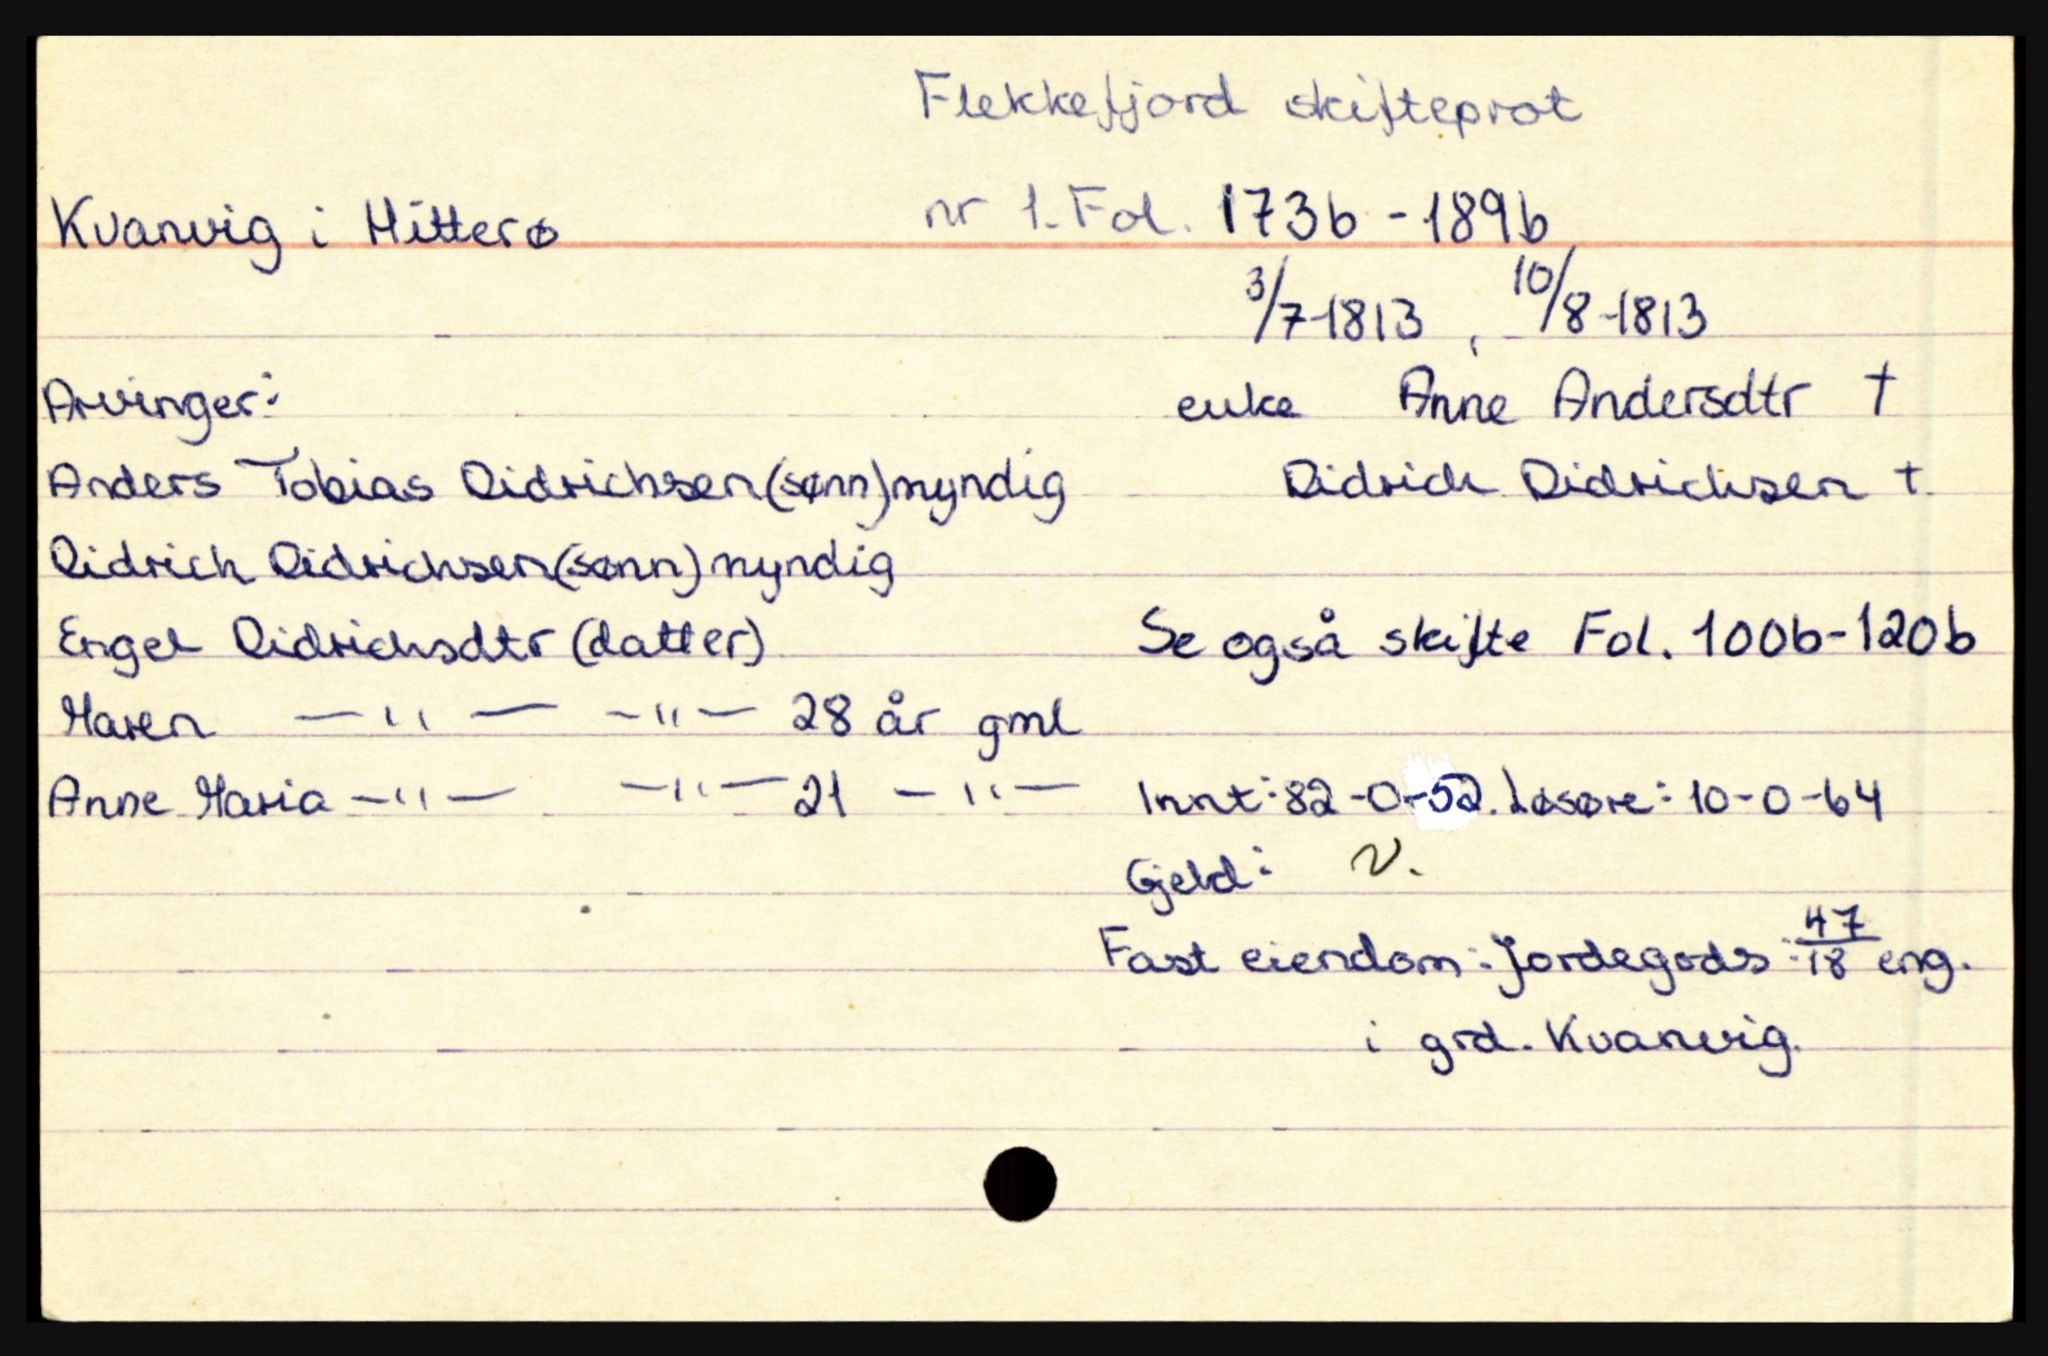 Flekkefjord skifteprot
Kvanvig i Hitterø
nr 1. Fol. 173b - 189b
3/7-1813 , 10/8-1813
Arvinger:
enke Anne Andersdtr †
Anders Tobias Didrichsen (sønn) myndig
Didrich Didrichsen †.
Didrich Didrichsen (sønn) myndig
Engel Didrichsdtr (datter)
Se også skifte Fol. 100b-120b
Maren — " — — " — 28 år gml
Anne Maria — " — — " — 21 — " —
Innt: 82-0-52. Løsøre: 10-0-64
Gjeld: N.
Fast eiendom: Jordegods: 47/18 eng.
i grd. Kvanvig.